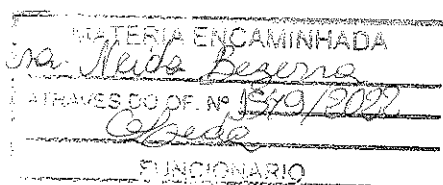 MATERIA ENCAMINHADA
Sra. Neida Bezerra
ATRAVES DO OF. Nº 1949/2022
FUNCIONARIO